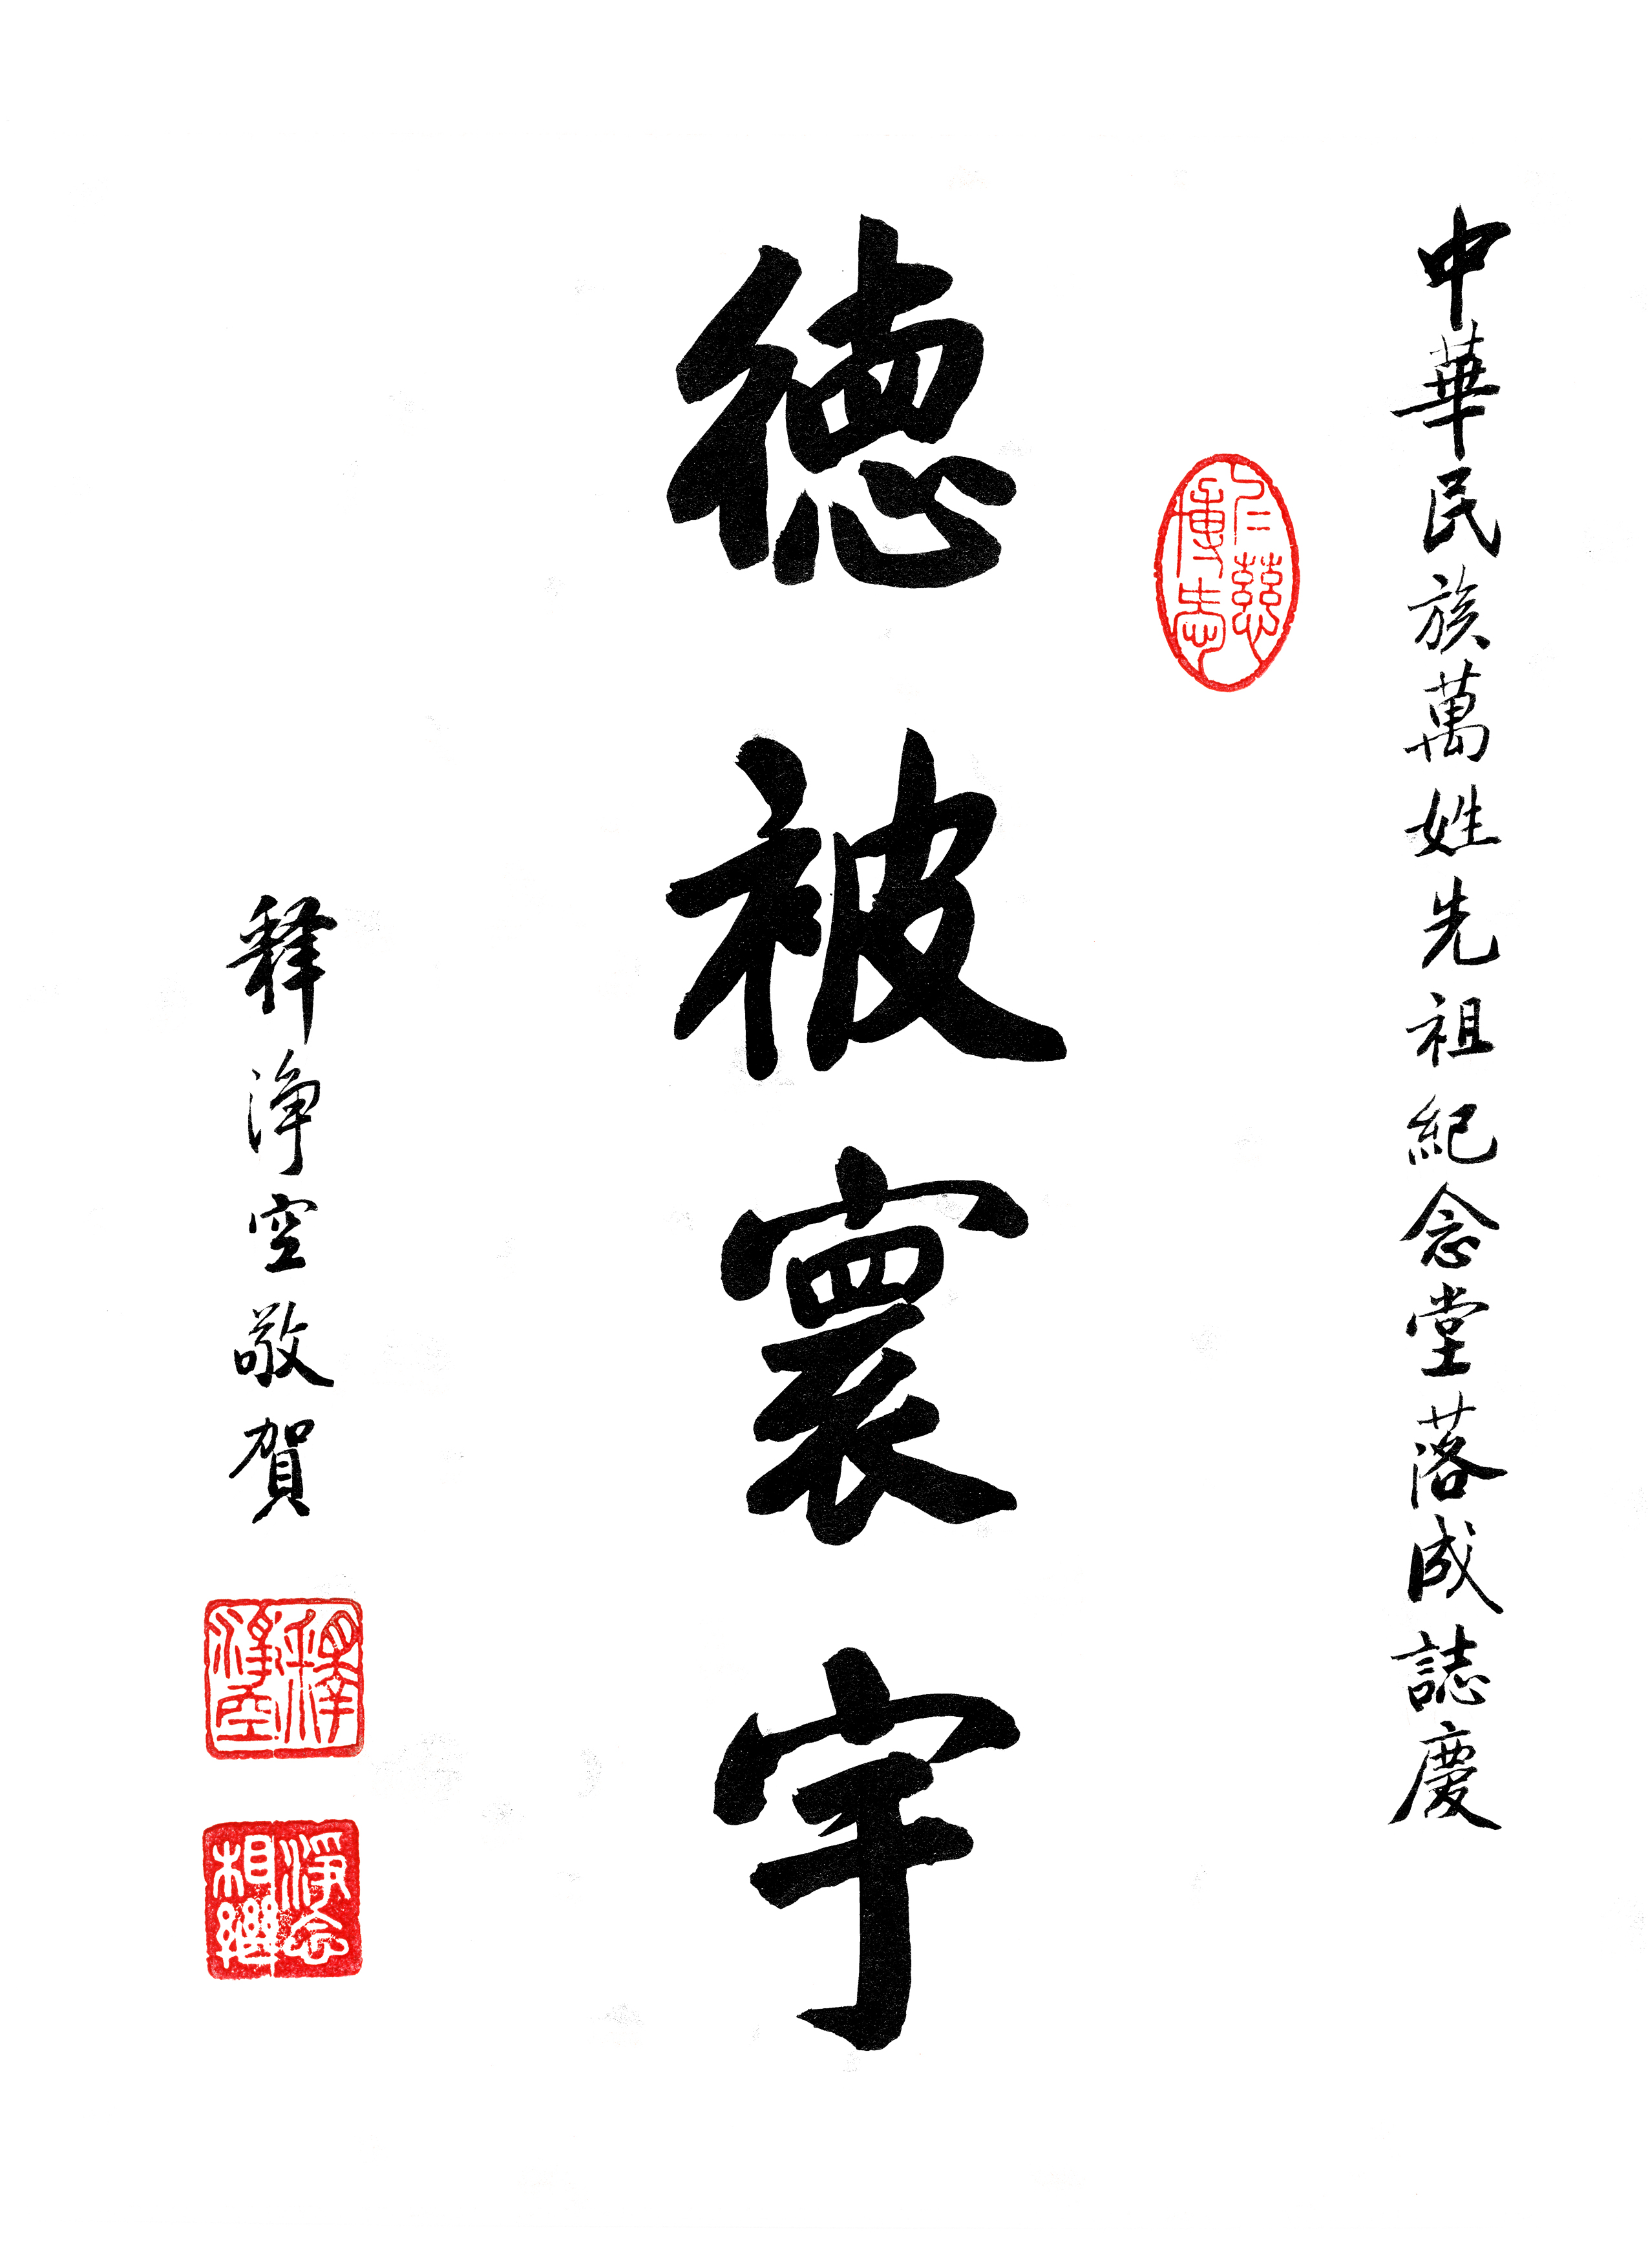 中華民族萬姓先祖紀念堂落成誌慶
仁慈
博愛
德被寰宇
释淨空敬賀
釋
淨空
淨念
相繼